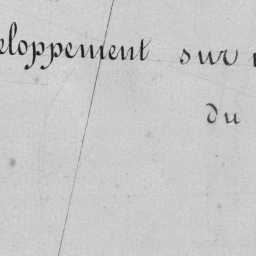 eloppement sur
du